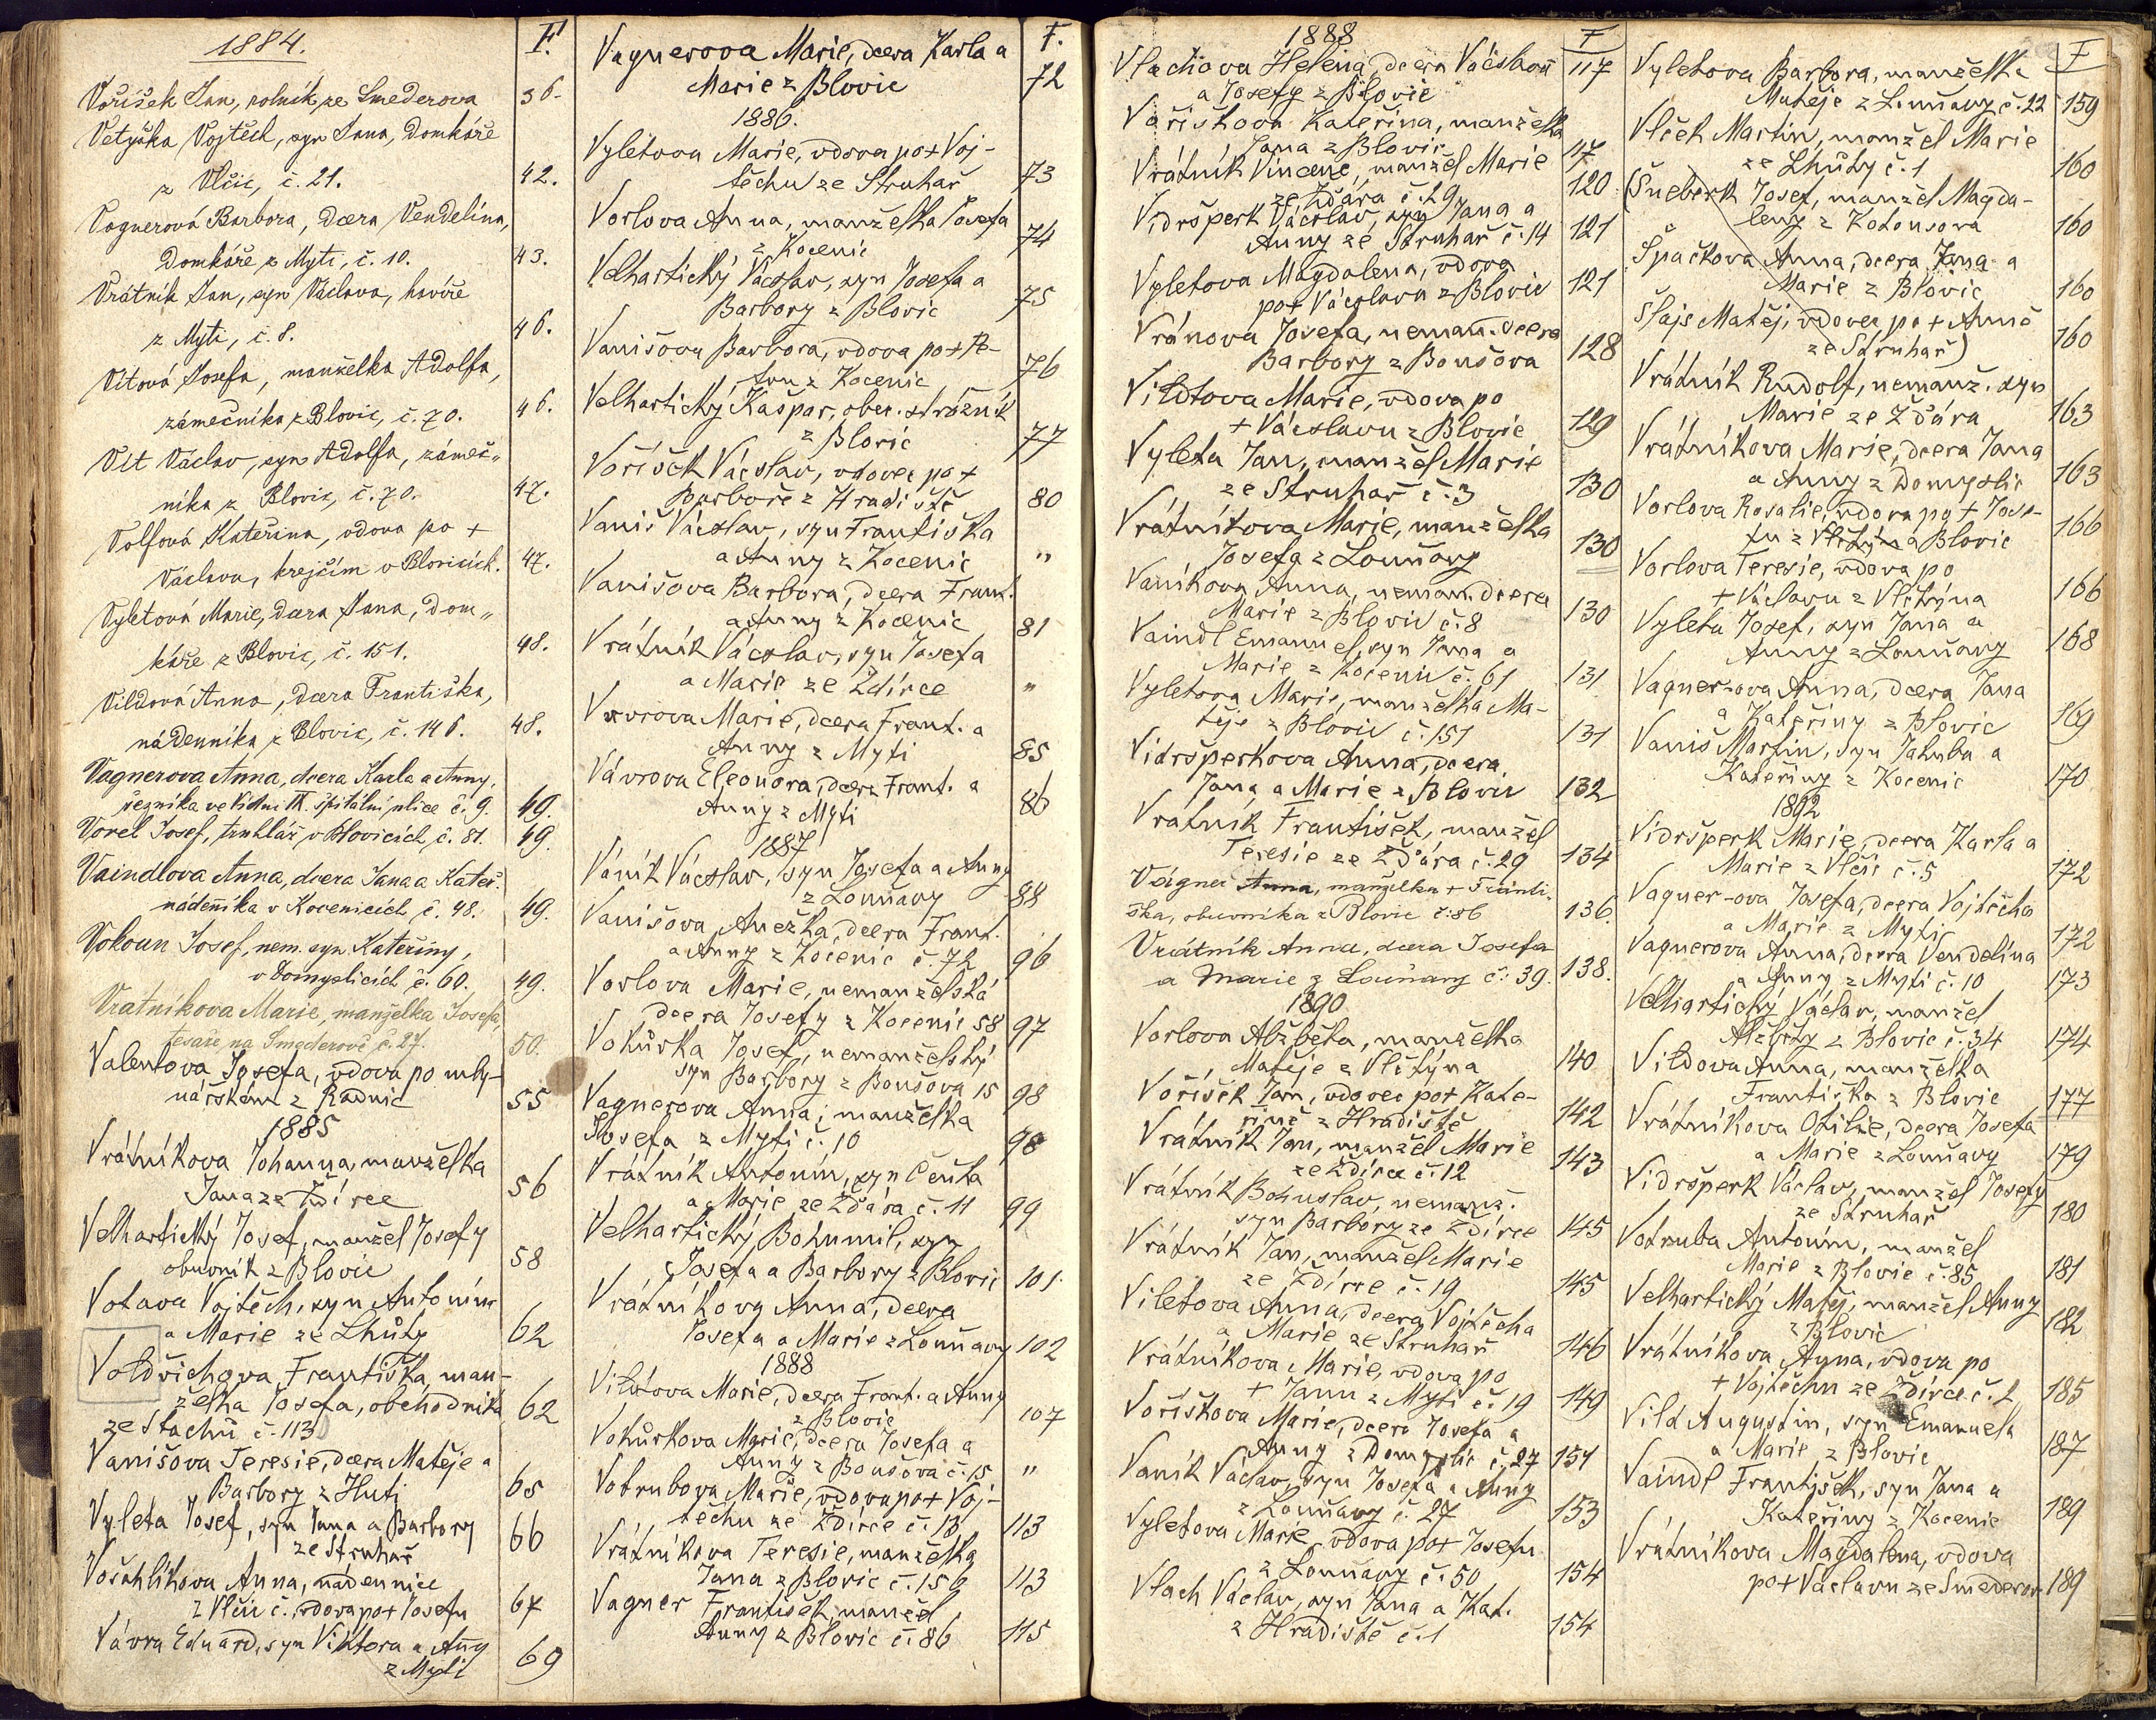 1884.
F.
Voříšek Jan, rolník ze Smederova 36.
Vetyška Vojtěch, syn Jana, domkáře
z Vlčic, č. 21. 42.
Vognerová Barbora, dcera Vendelína,
domkáře z Mýti, č. 10. 43.
Vrátník Jan, syn Václava, havíře
z Mýti, č. 8. 46.
Vítová Josefa, manželka Adolfa,
zámečníka z Blovic, č. 70. 46.
Vít Václav, syn Adolfa, zámeč„
níka z Blovic, č. 70. 47.
Volfová Kateřina, vdova po +
Václavu, krejčím v Blovicích. 47.
Vyletová Marie, dcera Jana, dom„
káře z Blovic, č. 151. 48.
Vildová Anna, dcera Františka,
nádenníka z Blovic, č. 146. 48.
Vágnerova Anna, dcera Karla a Anny,
řezníka ve Vídni IX. špitální ulice č. 9. 49.
Vorel Josef, truhlář v Blovicích, č. 81. 49.
Vaindlova Anna, dcera Jana a Kateř.
nádeníka v Kocenicích č. 48. 49.
Vokoun Josef, nem. syn Kateřiny,
v Domyslicích č. 60. 49.
Vrátníkova Marie, manželka Josefa,
tesaře na Smederově č. 27. 50.
Valentova Josefa, vdova po mly-
nářském z Radnic 55
1885
Vrátníkova Johanna, manželka
Jana ze Ždírce 56
Velhartický Josef, manžel Josefy
obuvník z Blovic 58
Votava Vojtěch, syn Antonína
a Marie ze Lhůty 62
Voldřichova Františka, man-
želka Josefa, obchodníka 62
ze Stachů č. 113
Vanišova Teresie, dcera Matěje a
Barbory z Huti 65
Vyleta Josef, syn Jana a Barbory
ze Struhař 66
Vošahlíkova Anna, nádennice
z Vlčic č., vdova po + Josefu 67
Vávra Eduard, syn Viktora a Anny
z Mýti 69
F.
Vagnerova Marie, dcera Karla a
Marie z Blovic 72
1886.
Vyletova Marie, vdova po + Voj-
těchu ze Struhař 73
Vorlova Anna, manželka Josefa
z Kocenic 74
Velhartický Vácslav, syn Josefa a
Barbory z Blovic 75
Vanišova Barbora, vdova po +
z Kocenic 76
Velhartický Kašpar, obec. strážník
z Blovic 77
Voříšek Vácslav, vdovec po +
Barboře z Hradiště 80
Vaniš Vácslav, syn Františka
a Anny z Kocenic "
Vanišova Barbora, dcera Frant.
a Anny z Kocenic 81
Vrátník Vácslav, syn Josefa
a Marie ze Ždírce "
Vavrova Marie, dcera Frant. a
Anny z Mýti 85
Vávrova Eleonora, dcera Frant. a
Anny z Mýti 86
1887
Váník Vácslav, syn Josefa a Anny
z Louňavy 88
Vanišova Anežka, dcera Frant.
a Anny z Kocenic č. 72 96
Vorlova Marie, nemanželská
dcera Josefy z Kocenic 58 97
Vokůrka Josef, nemanželský
syn Barbory z Boušova 15 98
Vagnerova Anna, manželka
Josefa z Mýti č. 10 98
Vrátník Antonín, syn Čeňka
a Marie ze Žďára č. 11 99
Velhartický Bohumil, syn
Josefa a Barbory z Blovic 101
Vrátníkova Anna, dcera
Josefa a Marie z Louňavy 102
1888
Vildova Marie, dcera Frant. a Anny
z Blovic 107
Vokůrkova Marie, dcera Josefa a
Anny z Boušova č. 15 "
Votrubova Marie, vdova po + Voj-
těchu ze Ždírce č. 13 113
Vrátníkova Teresie, manželka
Jana z Blovic č. 156 113
Vagner František, manžel
Anny z Blovic č. 86 115
1888
F
Vlachova Helena, dcera Vácslava 117
a Josefy z Blovic
Voříškova Kateřina, manželka
Jana z Blovic 117
Vrátník Vincenc, manžel Marie
ze Žďára č. 29 120
Vidršperk Vácslav, syn Jana a
Anny ze Struhař č. 14 121
Vyletova Magdalena, vdova
po + Vácslavu z Blovic 121
Vránova Josefa, neman. dcera
Barbory z Boušova 128
Vildtova Marie, vdova po
+ Vácslavu z Blovic 129
Vyleta Jan, manžel Marie
ze Struhař č. 3 130
Vrátníkova Marie, manželka
Josefa z Louňavy 130
Vaníkova Anna, neman. dcera
Marie z Blovic č. 8 130
Vaindl Emanuel, syn Jana a
Marie z Kocenic č. 61 131
Vyletova Marie, manželka Ma-
těje z Blovic č. 151 131
Vidršperkova Anna, dcera
Jana a Marie z Blovic 132
Vrátník František, manžel
Teresie ze Žďára č. 29 134
Vágner Anna, manželka + Franti-
ška, obuvníka z Blovic č. 86 136.
Vrátník Anna, dcera Josefa
a Marie z Louňavy č. 39. 138.
1890
Vorlova Alžběta, manželka
Matěje z Vlčtýna 140
Voříšek Jan, vdovec po + Kate-
řině z Hradiště 142
Vrátník Jan, manžel Marie
ze Ždírce č. 12 143
Vrátník Bohuslav, nemanž.
syn Barbory ze Ždírce 145
Vrátník Jan, manžel Marie
ze Ždírce č. 19 145
Viletova Anna, dcera Vojtěcha
a Marie ze Struhař 146
Vrátníkova Marie, vdova po
+ Janu z Mýti č. 19 149
Voříškova Marie, dcera Josefa a
Anny z Domyslic č. 27 151
Vaník Václav, syn Josefa a Anny
z Louňavy č. 27 153
Vyletova Marie, vdova po + Josefu
z Louňavy č. 50 154
Vlach Václav, syn Jana a Kat.
z Hradiště č. 1 154
F
Vyletova Barbora, manželka
Matěje z Louňavy č. 22 159
Vlček Martin, manžel Marie
ze Lhůty č. 1 160
(Šneberk Josef, manžel Magda-
leny z Kotousova 160
Špačkova Anna, dcera Jana a
Marie z Blovic 160
Šlajs Matěj, vdovec po + Anně
ze Struhař) 160
Vrátník Rudolf, nemanž. syn
Marie ze Žďára 163
Vrátníkova Marie, dcera Jana
a Anny z Domyslic 163
Vorlova Rosalie, vdova po + Jose-
fu z Vlčtýna Blovic 166
Vorlova Teresie, vdova po
+ Václavu z Vlčtýna 166
Vyleta Josef, syn Jana a
Anny z Louňavy 168
Vagner-ova Anna, dcera Jana
a Kateřiny z Blovic 169
Vaniš Martin, syn Jakuba a
Kateřiny z Kocenic 170
1892
Vidršperk Marie, dcera Karla a
Marie z Vlčic č. 5 172
Vagner-ova Josefa, dcera Vojtěcha
a Marie z Mýti 172
Vagnerova Anna, dcera Vendelína
a Anny z Mýti č. 10 173
Velhartický Václav, manžel
Alžběty z Blovic č. 34 174
Vildova Anna, manželka
Františka z Blovic 177
Vrátníkova Otilie, dcera Josefa
a Marie z Louňavy 179
Vidršperk Václav, manžel Josefy
ze Struhař 180
Votruba Antonín, manžel
Marie z Blovic č. 85 181
Velhartický Matěj, manžel Anny
z Blovic 182
Vrátníkova Anna, vdova po
+ Vojtěchu ze Ždírce č. 2 185
Vild Augustin, syn Emanuela
a Marie z Blovic 187
Vaindl František, syn Jana a
Kateřiny z Kocenic 189
Vrátníkova Magdalena, vdova
po + Václavu ze Smederova 189